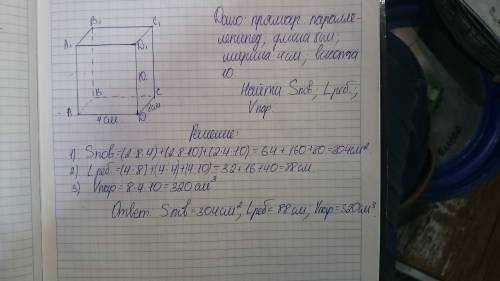 B₁ C₁
A₁ D₁
10
B C
8см
A D
4см
Дано: прямоуг. паралле-
лепипед, длина 8см;
ширина 4см, высота
10.
Найти Sпов; Lреб.;
Vпар.
Решение:
1) Sпов=(2·8·4)+(2·8·10)+(2·4·10)=64+160+80=304см²
2) Lреб=(4·8)+(4·4)+(4·10)=32+16+40=88см
3) Vпар=8·4·10=320см³
Ответ: Sпов=304см², Lреб=88см, Vпар=320см³